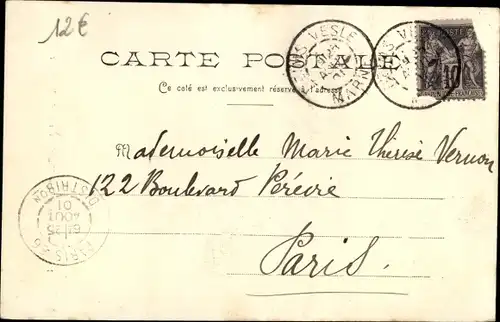 12€
CARTE POSTALE
Ce côté est exclusivement réservé à l'adresse
VESLE
MARNE
10
Mademoiselle Marie Thérèse Vernon
122 Boulevard Péreire
Paris.
PARIS-56
DISTRIBUTION
6H 25
AOUT
01